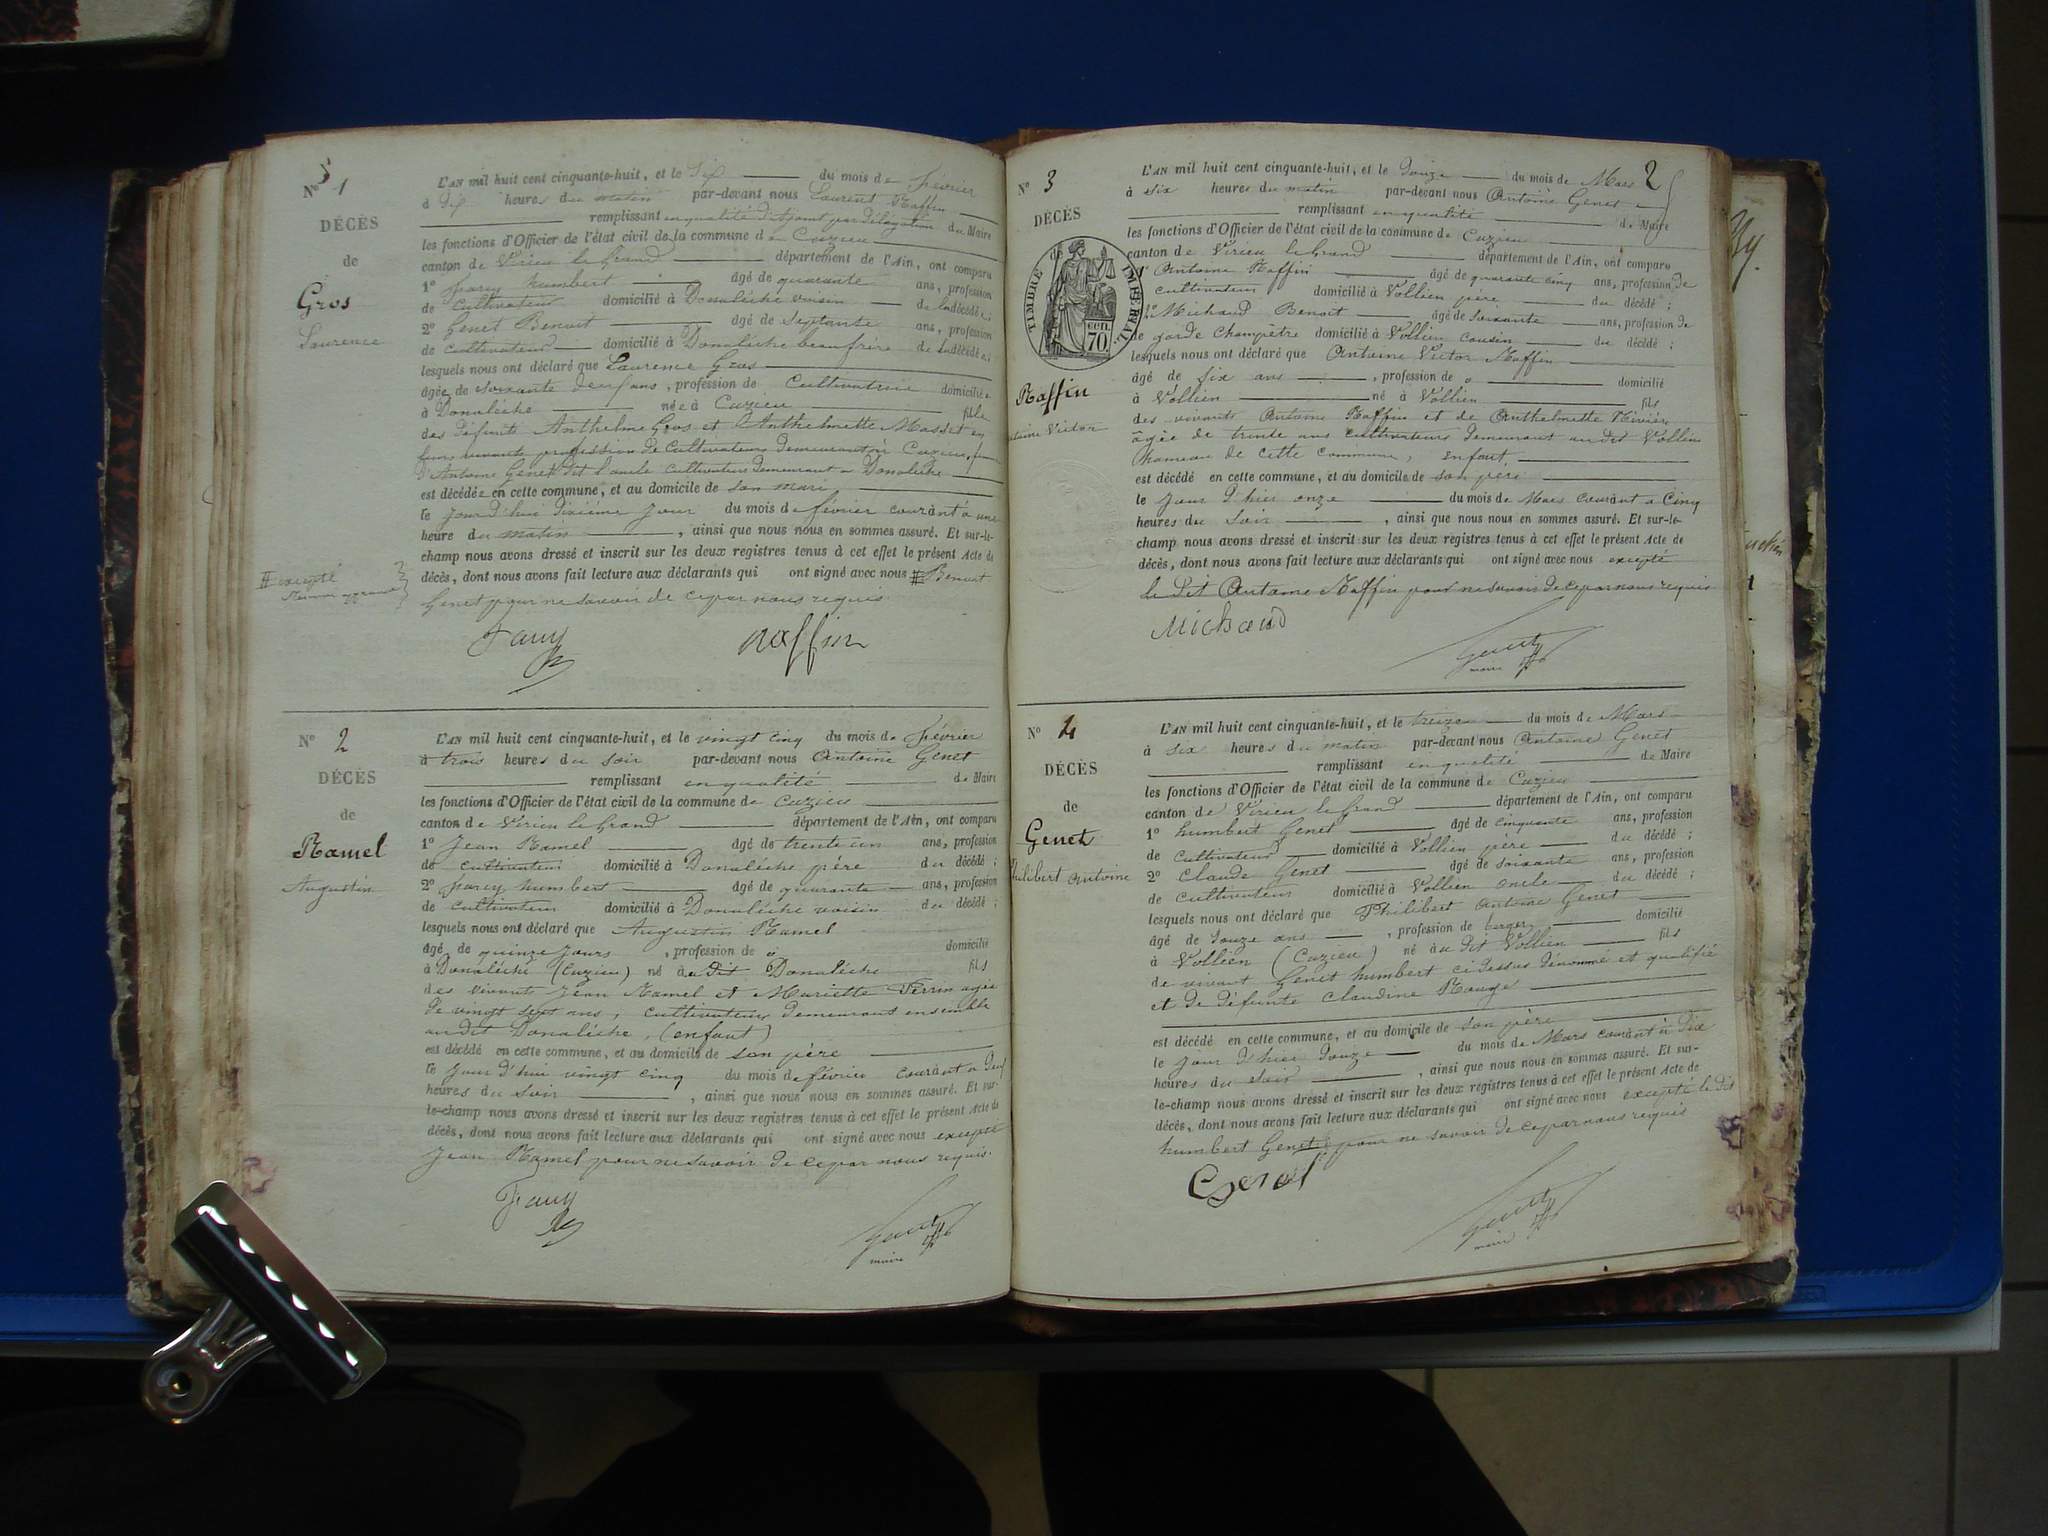 N° 1
DÉCÈS
de
Gros
Laurence
L'AN mil huit cent cinquante-huit, et le dix du mois de février
à dix heures du matin par-devant nous Laurent Raffin
remplissant en qualité d'Adjoint par délégation du Maire
les fonctions d'Officier de l'état civil de la commune de Cuzieu
canton de Virieu le Grand département de l'Ain, ont comparu
1° humbert âgé de quarante ans, profession
de Cultivateur domicilié à Donalèche voisin de la décédée;
2° Genet Benoit âgé de septante ans, profession
de Cultivateur domicilié à Donalèche beau frère de la décédée;
lesquels nous ont déclaré que Laurence Gros
âgée de soixante deux ans, profession de Cultivatrice domiciliée
à Donalèche née à Cuzieu fille
des défunts Anthelme Gros et Anthelmette Masset en
leurs vivants profession de Cultivateurs demeurant à Cuzieu,
d'Antoine Genet dit l'ancle Cultivateur demeurant à Donalèche
est décédée en cette commune, et au domicile de son mari
le jour d'hui dixième jour du mois de février courant à une
heure du matin, ainsi que nous nous en sommes assuré. Et sur-le-
champ nous avons dressé et inscrit sur les deux registres tenus à cet effet le présent Acte de
décès, dont nous avons fait lecture aux déclarants qui ont signé avec nous # Benoit
Genet pour ne savoir de ce par nous requis
# excepté
raffin
N° 2
DÉCÈS
de
Ramel
Augustin
L'AN mil huit cent cinquante-huit, et le vingt cinq du mois de février
à trois heures du soir par-devant nous Antoine Genet
remplissant en qualité de Maire
les fonctions d'Officier de l'état civil de la commune de Cuzieu
canton de Virieu le Grand département de l'Ain, ont comparu
1° Jean Ramel âgé de trente un ans, profession
de cultivateur domicilié à Donalèche père du décédé;
2° humbert âgé de quarante ans, profession
de cultivateur domicilié à Donalèche voisin du décédé;
lesquels nous ont déclaré que Augustin Ramel
âgé de quinze jours, profession de domicilié
à Donalèche (Cuzieu) né au dit Donalèche fils
des vivants Jean Ramel et Mariette Perrin agée
de vingt sept ans, cultivateurs demeurant ensemble
au dit Donalèche, (enfant)
est décédé en cette commune, et au domicile de son père
le jour d'hui vingt cinq du mois de février courant à deux
heures du soir, ainsi que nous nous en sommes assuré. Et sur-
le-champ nous avons dressé et inscrit sur les deux registres tenus à cet effet le présent Acte de
décès, dont nous avons fait lecture aux déclarants qui ont signé avec nous excepté
Jean Ramel pour ne savoir de ce par nous requis.
Genet
maire
2
N° 3
DÉCÈS
TIMBRE IMPÉRIAL
70 cen.
Raffin
Antoine Victor
L'AN mil huit cent cinquante-huit, et le douze du mois de Mars
à six heures du matin par-devant nous Antoine Genet
remplissant en qualité de Maire
les fonctions d'Officier de l'état civil de la commune de Cuzieu
canton de Virieu le Grand département de l'Ain, ont comparu
1° Antoine Raffin âgé de quarante cinq ans, profession de
cultivateur domicilié à Vollien père du décédé;
2° Michaud Benoit âgé de soixante ans, profession de
de garde Champêtre domicilié à Vollien cousin du décédé;
lesquels nous ont déclaré que Antoine Victor Raffin
âgé de six ans, profession de domicilié
à Vollien né à Vollien fils
des vivants Antoine Raffin et de Anthelmette
âgée de trente ans cultivateurs demeurant au dit Vollien
hameau de cette commune, enfant
est décédé en cette commune, et au domicile de son père
le jour d'hier onze du mois de Mars courant à cinq
heures du soir, ainsi que nous nous en sommes assuré. Et sur-le-
champ nous avons dressé et inscrit sur les deux registres tenus à cet effet le présent Acte de
décès, dont nous avons fait lecture aux déclarants qui ont signé avec nous excepté
le dit Antoine Raffin pour ne savoir de ce par nous requis
Michaud
Genet
maire
N° 4
DÉCÈS
de
Genet
Philibert Antoine
L'AN mil huit cent cinquante-huit, et le treize du mois de Mars
à six heures du matin par-devant nous Antoine Genet
remplissant en qualité de Maire
les fonctions d'Officier de l'état civil de la commune de Cuzieu
canton de Virieu le Grand département de l'Ain, ont comparu
1° humbert Genet âgé de cinquante ans, profession
de Cultivateur domicilié à Vollien père du décédé;
2° Claude Genet âgé de soixante ans, profession
de cultivateur domicilié à Vollien oncle du décédé;
lesquels nous ont déclaré que Philibert Antoine Genet
âgé de douze ans, profession de berger domicilié
à Vollien (Cuzieu) né au dit Vollien fils
de vivant Genet humbert ci dessus dénommé et qualifié
et de défunte Claudine Rouge
est décédé en cette commune, et au domicile de son père
le jour d'hier douze du mois de Mars courant à dix
heures du soir, ainsi que nous nous en sommes assuré. Et sur-
le-champ nous avons dressé et inscrit sur les deux registres tenus à cet effet le présent Acte de
décès, dont nous avons fait lecture aux déclarants qui ont signé avec nous excepté le dit
humbert Genet pour ne savoir de ce par nous requis
Genet
Genet
maire